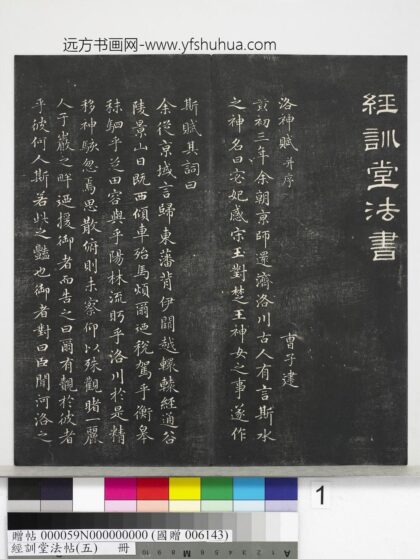 远方书画网-www.yfshuhua.com
經訓堂法書
洛神賦 并序 曹子建
黃初三年余朝京師還濟洛川古人有言斯水
之神名曰宓妃感宋王對楚王神女之事遂作
斯賦其詞曰
余從京域言歸東藩背伊闕越轘轅經通谷
陵景山日既西傾車殆馬煩爾迺稅駕乎衡皋
秣駟乎芝田容與乎陽林流眄乎洛川於是精
移神駭忽焉思散俯則未察仰以殊觀睹一麗
人于巖之畔迺援御者而告之曰爾有覿於彼者
乎彼何人斯若此之豔也御者對曰臣聞河洛之
1
贈帖 000059N000000000 (國贈 006143)
經訓堂法帖(五) 冊